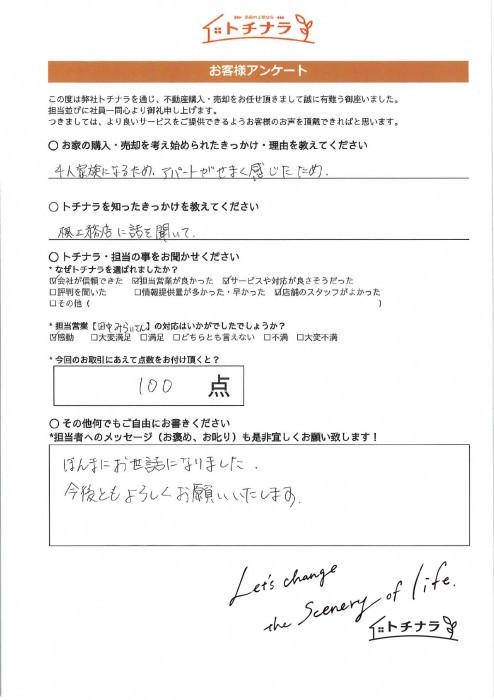 トチナラ
お客様アンケート
この度は弊社トチナラを通じ、不動産購入・売却をお任せ頂きまして誠に有難う御座いました。
担当並びに社員一同心より御礼申し上げます。
つきましては、より良いサービスをご提供できるようお客様のお声を頂戴できればと思います。
○ お家の購入・売却を考え始められたきっかけ・理由を教えてください
4人家族になるため、アパートがせまく感じたため.
○ トチナラを知ったきっかけを教えてください
工務店に話を聞いて.
○ トチナラ・担当の事をお聞かせください
* なぜトチナラを選ばれましたか？
☑会社が信頼できた ☑担当営業が良かった ☑サービスや対応が良さそうだった
□評判を聞いた □情報提供量が多かった・早かった ☑店舗のスタッフがよかった
□その他（ ）
* 担当営業【田中みらいさん】の対応はいかがでしたでしょうか？
☑感動 □大変満足 □満足 □どちらとも言えない □不満 □大変不満
* 今回のお取引にあえて点数をお付け頂くと？
100 点
○ その他何でもご自由にお書きください
*担当者へのメッセージ（お褒め、お叱り）も是非宜しくお願い致します！
ほんまにお世話になりました.
今後ともよろしくお願いいたします.
Let's change
the Scenery of life.
トチナラ